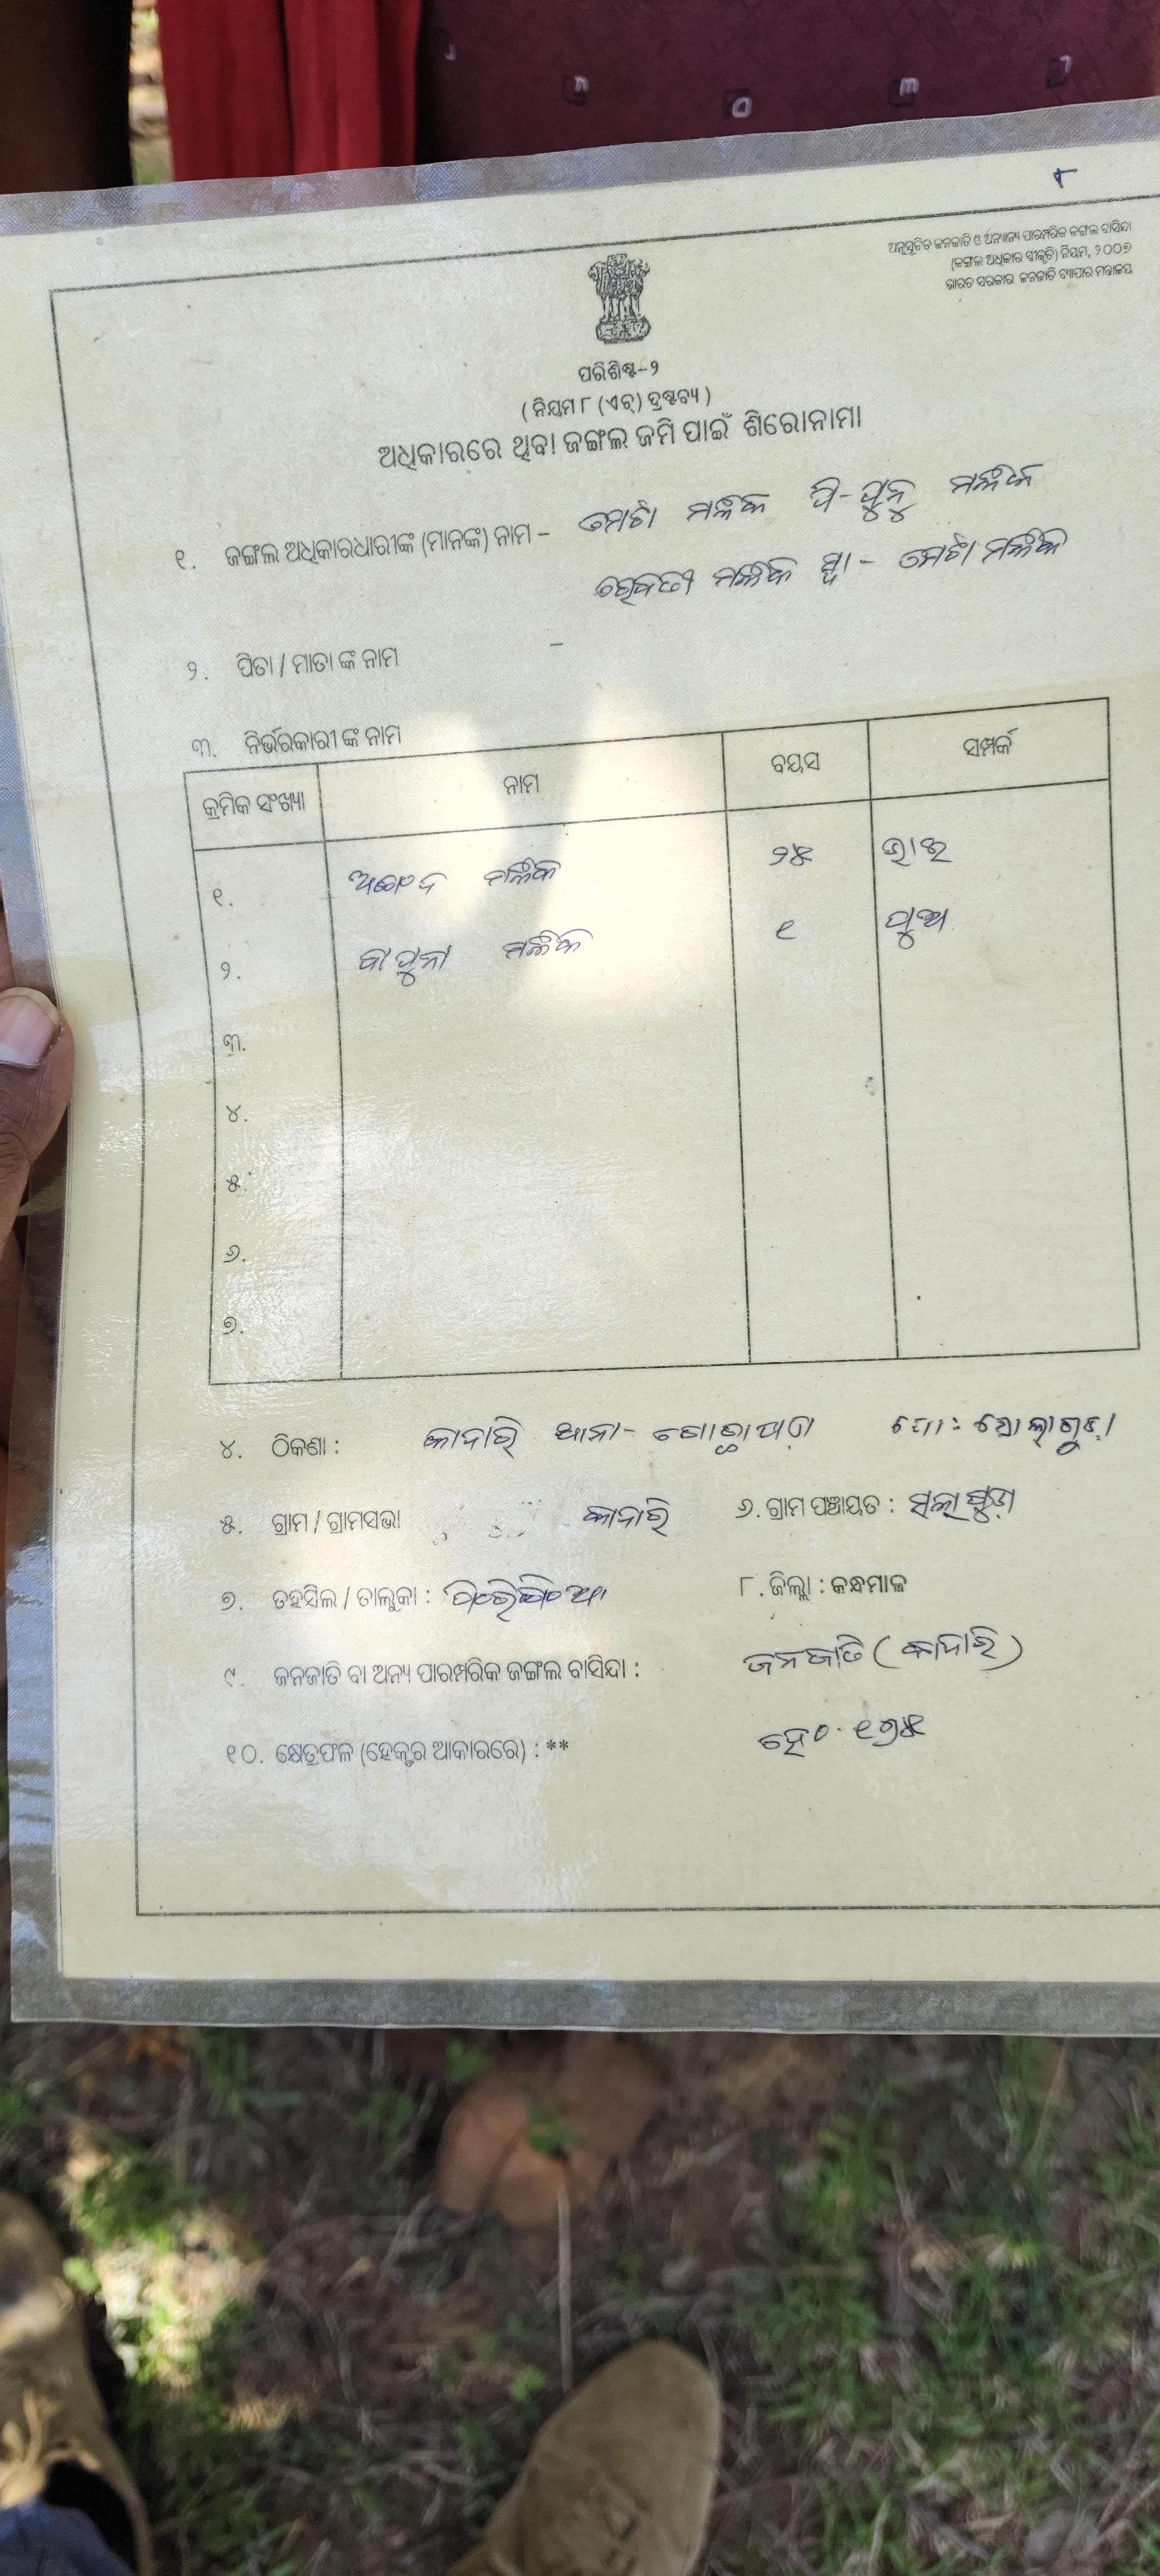 ୮
ଅନୁସୂଚିତ ଜନଜାତି ଓ ଅନ୍ୟାନ୍ୟ ପାରମ୍ପରିକ ଜଙ୍ଗଲ ବାସିନ୍ଦା
(ଜଙ୍ଗଲ ଅଧିକାର ସ୍ବୀକୃତି) ନିୟମ, ୨୦୦୭
ଭାରତ ସରକାର ଜନଜାତି ବ୍ୟାପାର ମନ୍ତ୍ରାଳୟ
ପରିଶିଷ୍ଟ-୨
( ନିୟମ ୮ (ଏଚ୍) ଦ୍ରଷ୍ଟବ୍ୟ )
ଅଧିକାରରେ ଥିବା ଜଙ୍ଗଲ ଜମି ପାଇଁ ଶିରୋନାମା
୧. ଜଙ୍ଗଲ ଅଧିକାରଧାରୀଙ୍କ (ମାନଙ୍କ) ନାମ – ମେଟା ମଲ୍ଲିକ ପି-ପୁନୁ ମଲ୍ଲିକ
ରେବତୀ ମଲ୍ଲିକ ସ୍ୱା - ମେଟା ମଲ୍ଲିକ
୨. ପିତା / ମାତା ଙ୍କ ନାମ –
୩. ନିର୍ଭରକାରୀ ଙ୍କ ନାମ
କ୍ରମିକ ସଂଖ୍ୟା ନାମ ବୟସ ସମ୍ପର୍କ
୧. ମଲ୍ଲିକ ୨୫ ଭାଇ
୨. ମଲ୍ଲିକ ୧ ପୁଅ
୩.
୪.
୫.
୬.
୭.
୪. ଠିକଣା : କାଦାରି ଥାନା- ଗୋଛାପଡା ପୋ :
୫. ଗ୍ରାମ / ଗ୍ରାମସଭା କାଦାରି ୬. ଗ୍ରାମ ପଞ୍ଚାୟତ :
୭. ତହସିଲ / ତାଲୁକା : ୮. ଜିଲ୍ଲା : କନ୍ଧମାଳ
୯. ଜନଜାତି ବା ଅନ୍ୟ ପାରମ୍ପରିକ ଜଙ୍ଗଲ ବାସିନ୍ଦା : ଜନଜାତି ( କାଦାରି )
୧୦. କ୍ଷେତ୍ରଫଳ (ହେକ୍ଟର ଆକାରରେ) : ** ହେ ୦.୧୬୫